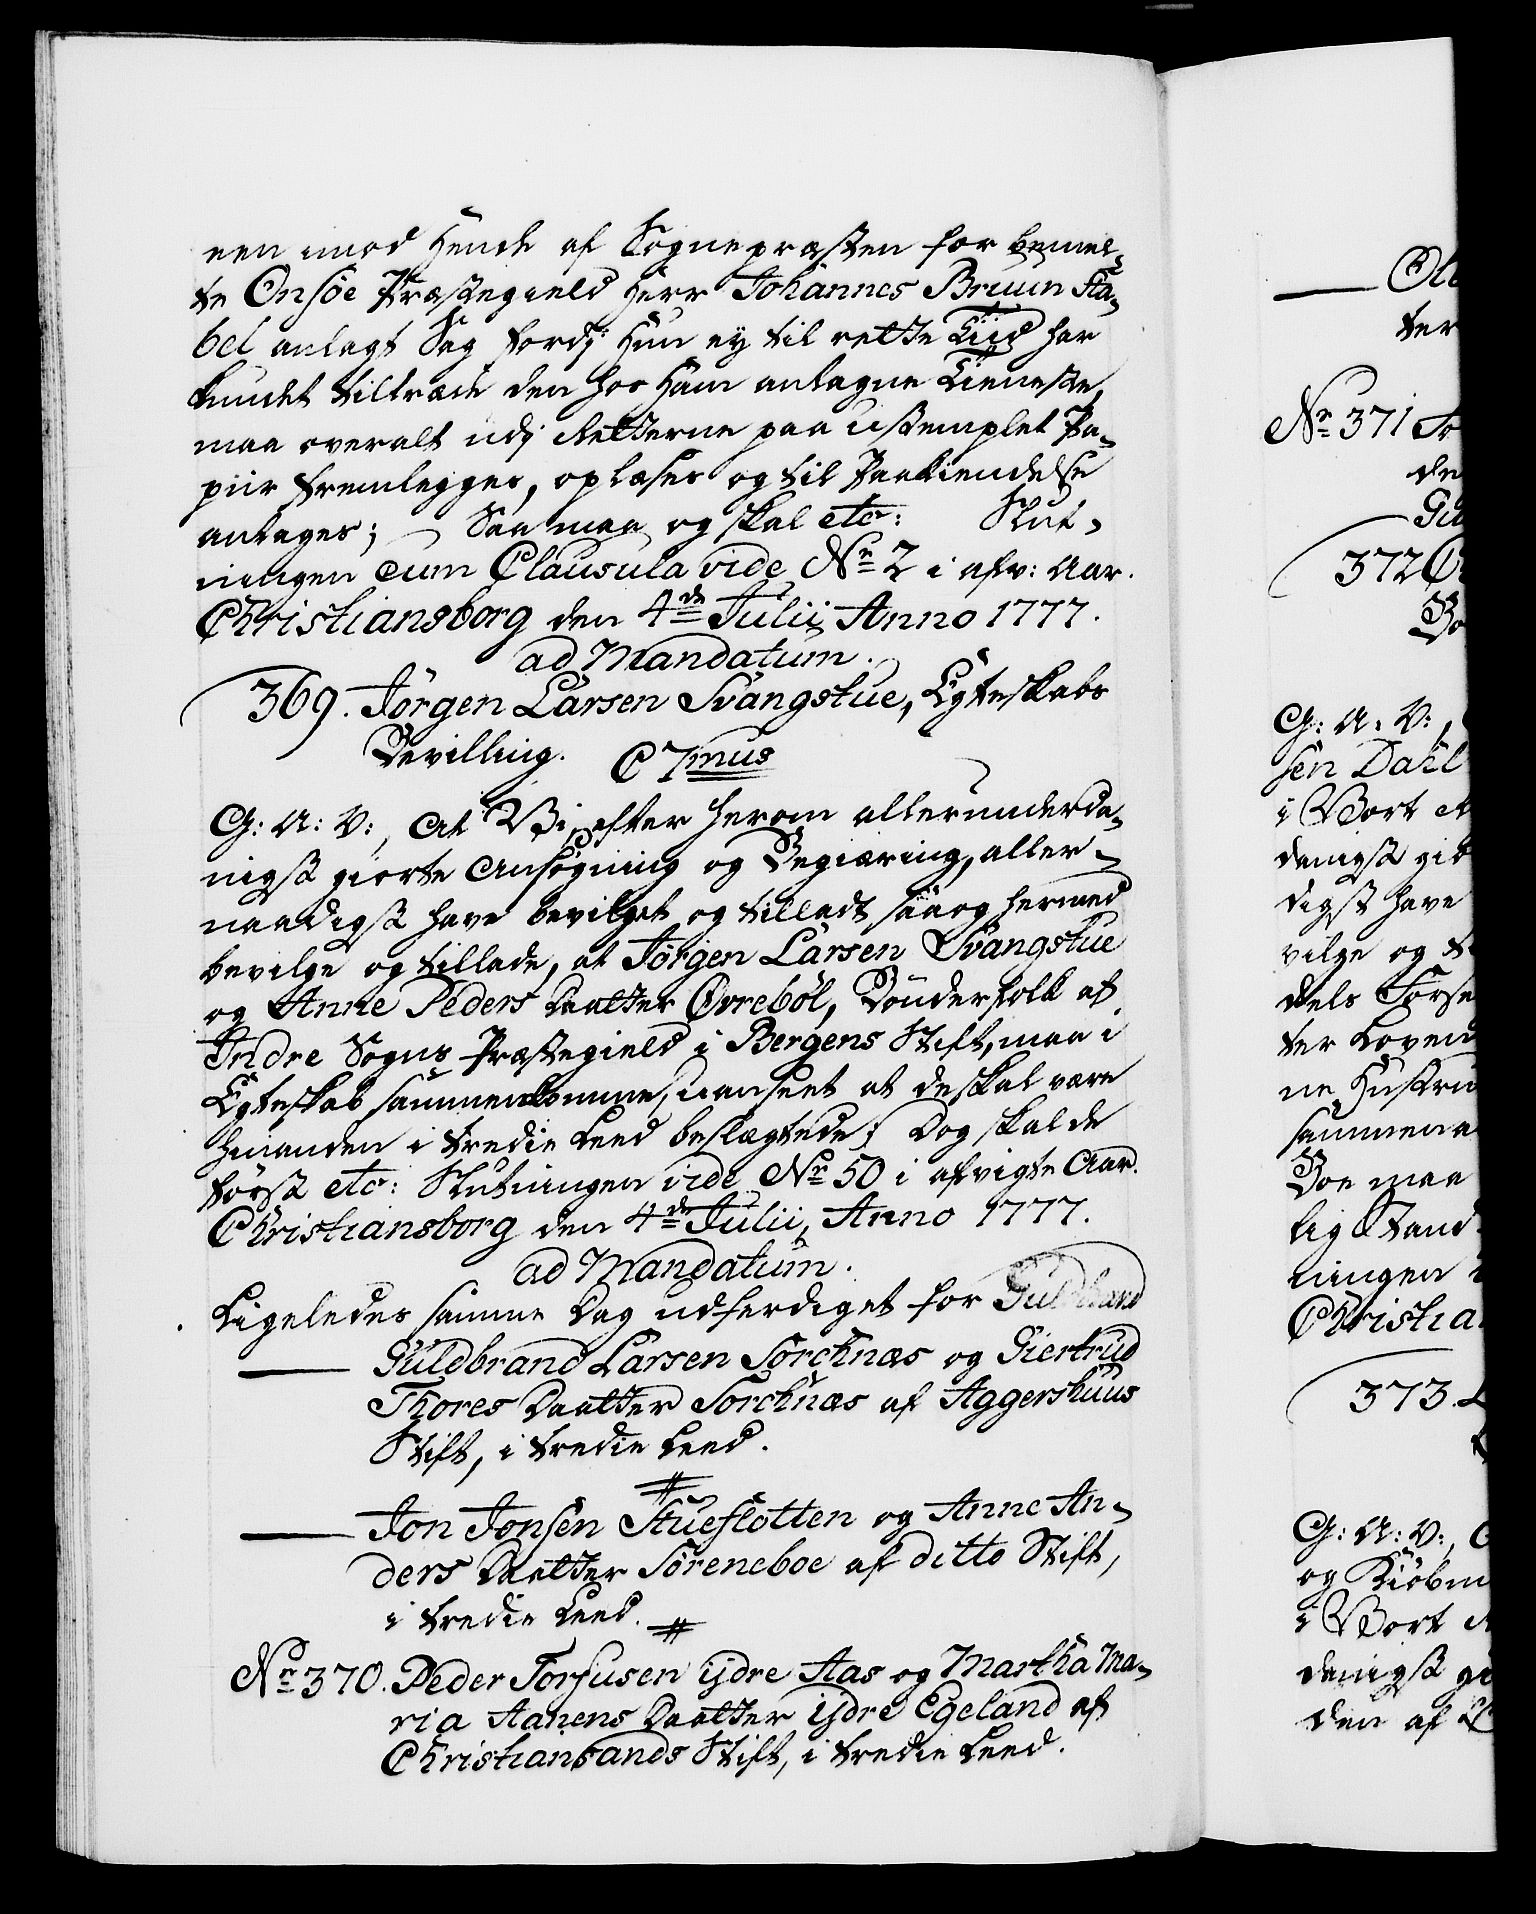 een imod Hende af Sognepræsten for bemel-
te Onsöe Præstegield Herr Johannes Bruun Sta-
bel anlagt Sag fordj Hun ey til rette Tiid har
kundet tiltræde den hos Ham antagne Tieneste,
maa overalt udj Retterne paa ustemplet Pa-
piir fremlegges, oplæses og til Paakiendelse
antages; Saa maa og skal etc: Slut-
ningen cum Clausula vide No 2 i afv: Aar.
Christiansborg den 4de Julii Anno 1777.
ad Mandatum.
369. Jörgen Larsen Svangstue, Egteskabs
Bevilling. C 7mus
G: A: V:, At Vi, efter herom allerunderda-
nigst giorte Ansögning og Begiæring, aller-
naadigst have bevilget og tilladt, saa og hermed
bevilge og tillade, at Jörgen Larsen Svangstue
og Anne Peders Daatter Övreböl, Bönderfolk af
Indre Sogns Præstegield i Bergens Stift, maa i
Egteskab sammenkomme, uanseet at de skal være
hinanden i tredie Leed beslægtede; Dog skal de
först etc: Slutningen vide No 50 i afvigte Aar.
Christiansborg den 4de Julii, Anno 1777.
ad Mandatum.
Ligeledes samme Dag udferdiget for Guldbrand
Guldbrand Larsen Sorcknæs og Giertrud
Thores Daatter Sorcknæs af Aggershuus
Stift, i tredie Leed.
Jon Jonsen Stueflotten og Anne An-
ders Daatter Söreneboe af ditto Stift,
i tredie Leed.
No 370. Peder Torjusen ijdre Aas og Martha Ma-
ria Aanens Daatter ijdre Egeland af
Christiansands Stift, i tredie Leed.
ter
No 371
de
372
Bo
G: A: V:,
sen Dahl
i Vort
danigst gi
digst have
vilge og t
dels Forse
ter Loven
ne Hustru
sammen
Boe maa
lig Stand
ningen
Christia
373.
G: A: V:,
og Kiöbm
i Vort
danigst gi
den af